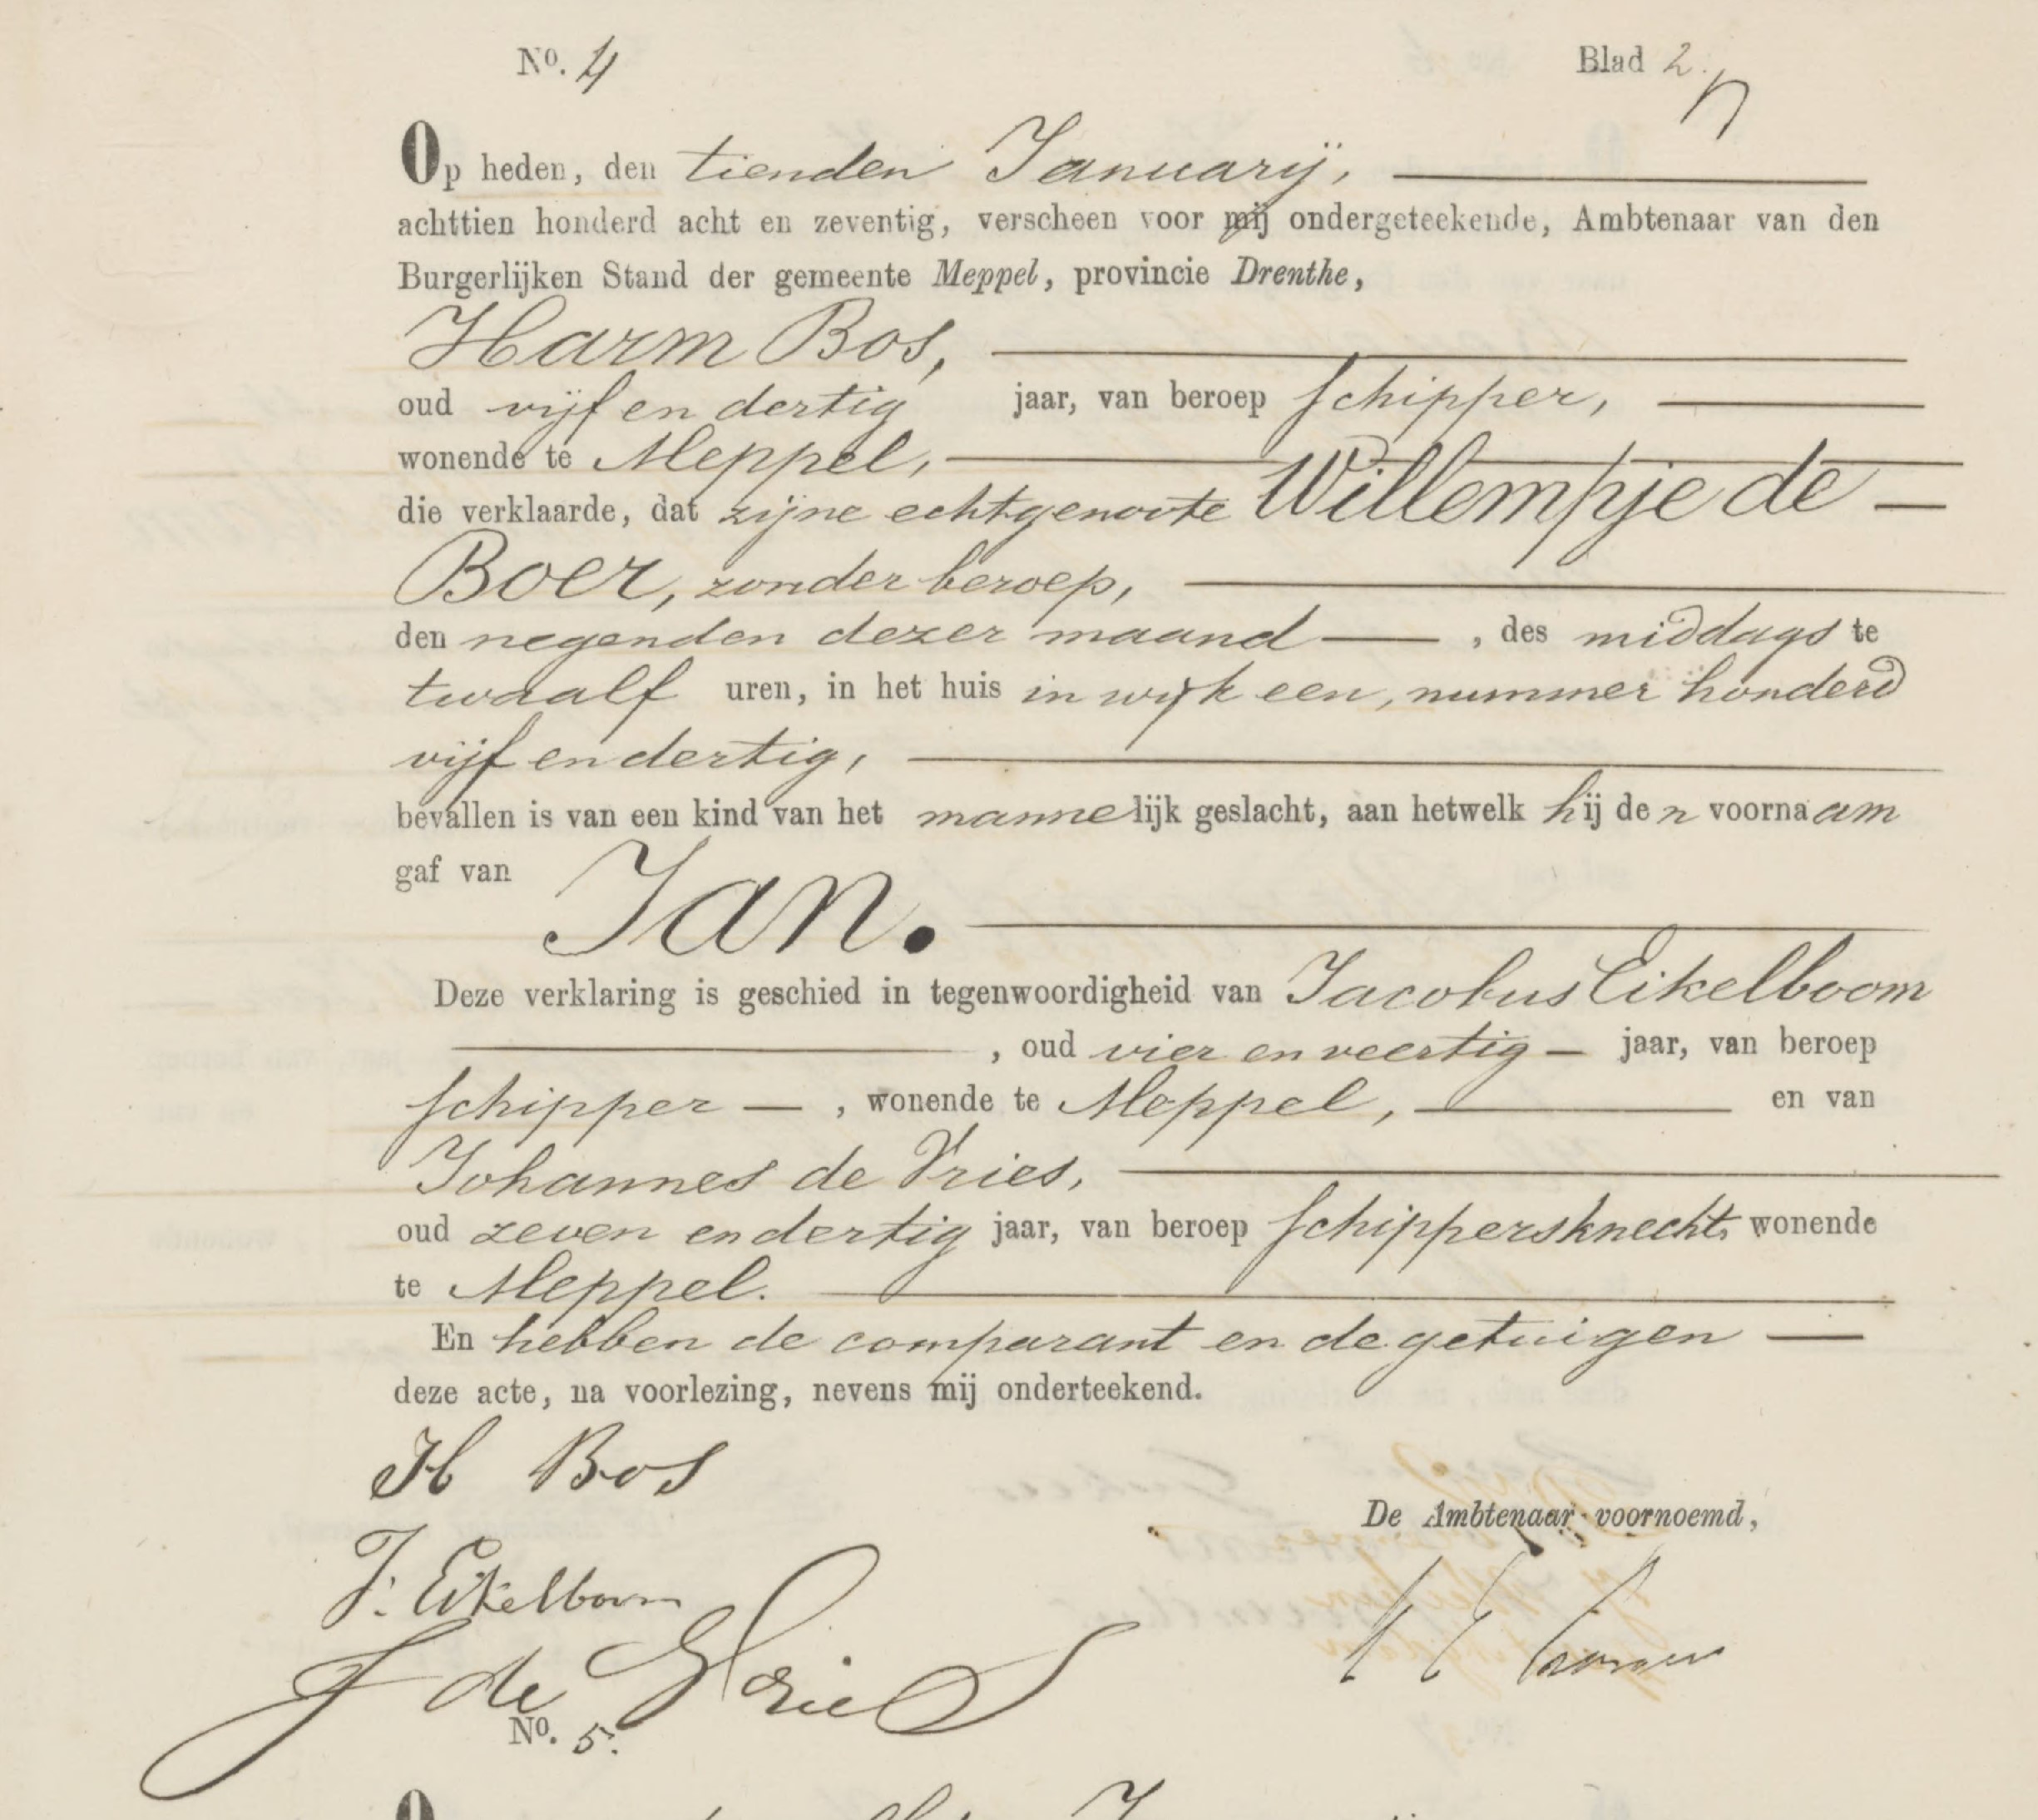 No. 4 Blad 2.
Op heden, den tienden Januarij,
achttien honderd acht en zeventig, verscheen voor mij ondergeteekende, Ambtenaar van den
Burgerlijken Stand der gemeente Meppel, provincie Drenthe,
Harm Bos,
oud vijf en dertig jaar, van beroep schipper,
wonende te Meppel,
die verklaarde, dat zijne echtgenoote Willempje de
Boer, zonder beroep,
den negenden dezer maand, des middags te
twaalf uren, in het huis in wijk een, nummer honderd
vijf en dertig,
bevallen is van een kind van het mannelijk geslacht, aan hetwelk hij den voornaam
gaf van Jan.
Deze verklaring is geschied in tegenwoordigheid van Jacobus Eikelboom
, oud vier en veertig jaar, van beroep
schipper, wonende te Meppel, en van
Johannes de Vries,
oud zeven en dertig jaar, van beroep schippersknecht, wonende
te Meppel.
En hebben de comparant en de getuigen
deze acte, na voorlezing, nevens mij onderteekend.
H Bos
De Ambtenaar voornoemd,
J. Eikelboom
J de Vries
No. 5.